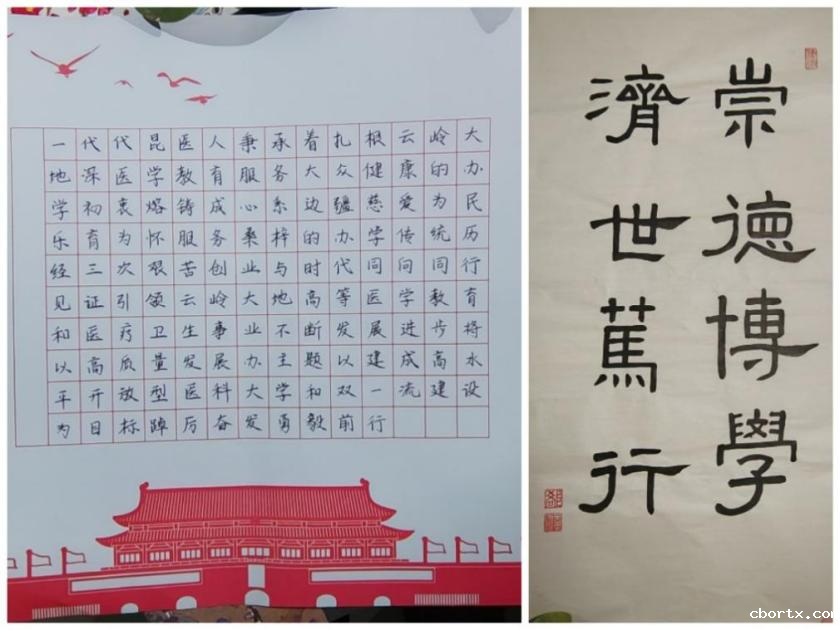 一代代昆医人秉承着扎根云岭大
地深医学教育服务大众健康的办
学初衷熔铸成心系边疆慈爱为民
乐育为怀服务桑梓的办学传统历
经三次艰苦创业与时代同向同行
见证引领云岭大地高等医学教育
和医疗卫生事业不断发展进步将
以高质量发展办主题以建成高水
平开放型医科大学和双一流建设
为目标踔厉奋发勇毅前行
崇德博學
濟世篤行
cbortx.com